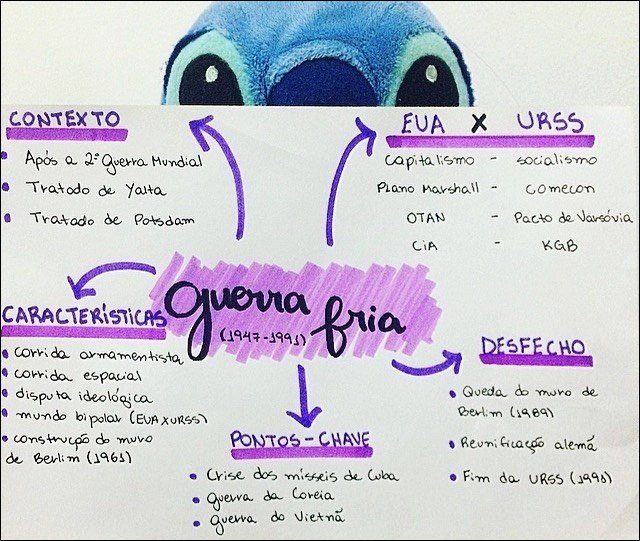 CONTEXTO
• Após a 2ª Guerra Mundial
• Tratado de Yalta
• Tratado de Potsdam
EUA X URSS
capitalismo - socialismo
Plano Marshall - comecon
OTAN - Pacto de Varsóvia
CiA - KGB
guerra fria
(1947-1991)
CARACTERÍSTICAS
• corrida armamentista
• corrida espacial
• disputa ideológica
• mundo bipolar (EUA X URSS)
• construção do muro
de Berlim (1961)
PONTOS-CHAVE
• Crise dos mísseis de Cuba
• guerra da Coreia
• guerra do Vietnã
DESFECHO
• Queda do muro de
Berlim (1989)
• Reunificação alemã
• Fim da URSS (1991)